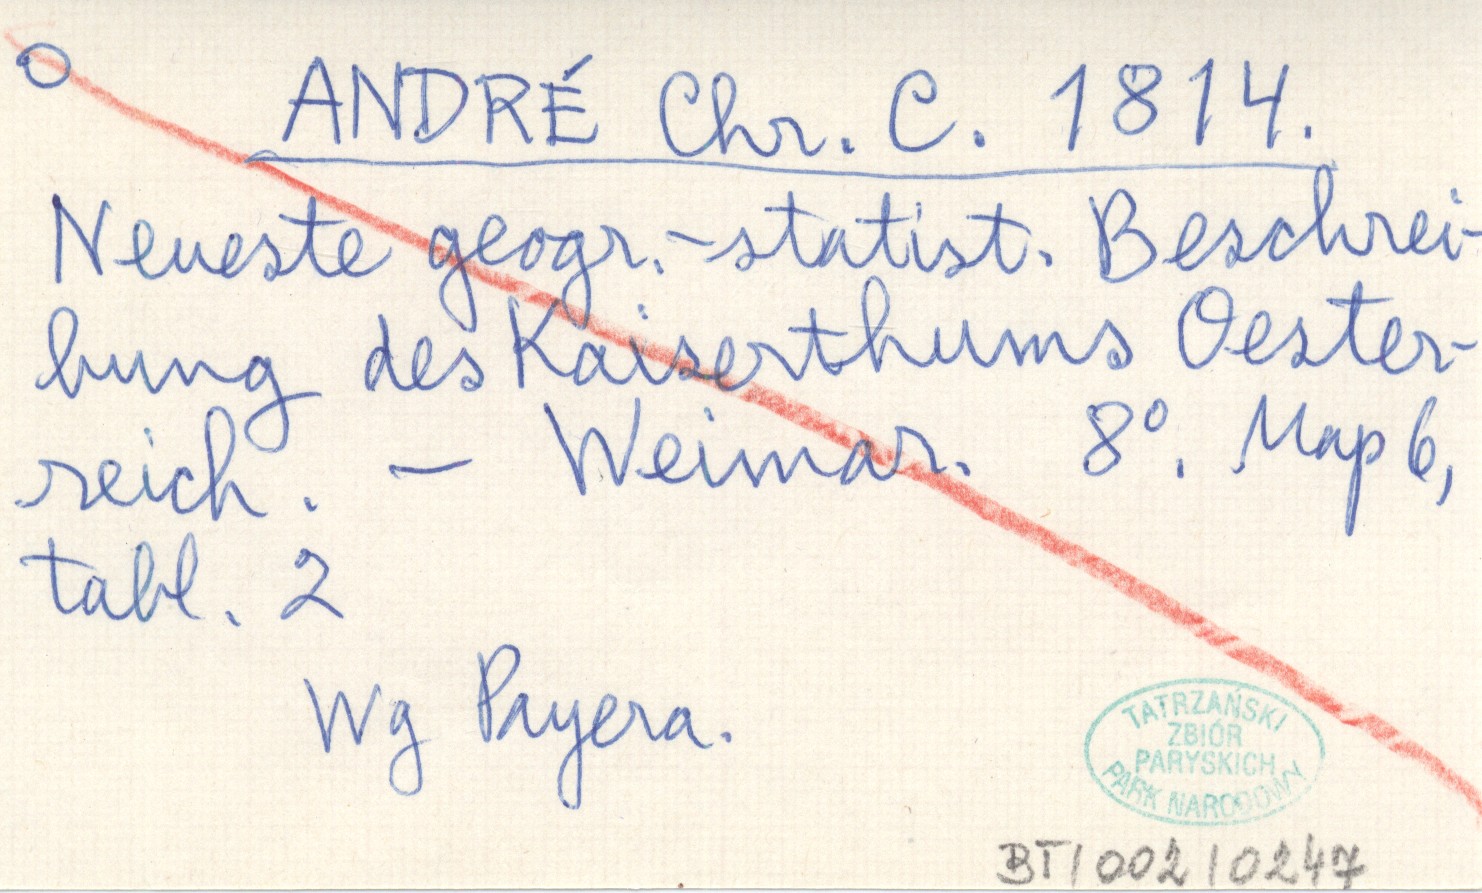 ANDRÉ Chr. C. 1814.
Neueste geogr.-statist. Beschrei-
bung des Kaiserthums Oester-
reich. — Weimar. 8°. Map 6,
tabl. 2
Wg Payera.
TATRZAŃSKI
ZBIÓR
PARYSKICH
PARK NARODOWY
BT/002/0247